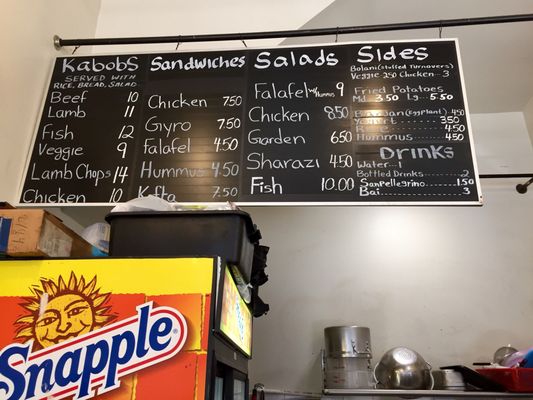 Kabobs
SERVED WITH
RICE, BREAD, SALAD
Beef 10
Lamb 11
Fish 12
Veggie 9
Lamb Chops 14
Chicken 10
Sandwiches
Chicken 7.50
Gyro 7.50
Falafel 4.50
Hummus 4.50
Kofta 7.50
Salads
Falafel w/ Hummus 9
Chicken 8.50
Garden 6.50
Sharazi 4.50
Fish 10.00
Sides
Bolani (Stuffed Turnovers)
Veggie 2.50 Chicken 3
Fried Potatoes
Md 3.50 Lg 5.50
(Eggplant) 4.50
3.50
4.50
Hummus 4.50
Drinks
Water 1
Bottled Drinks 2
Sanpellegrino 1.50
Bai 3
Snapple